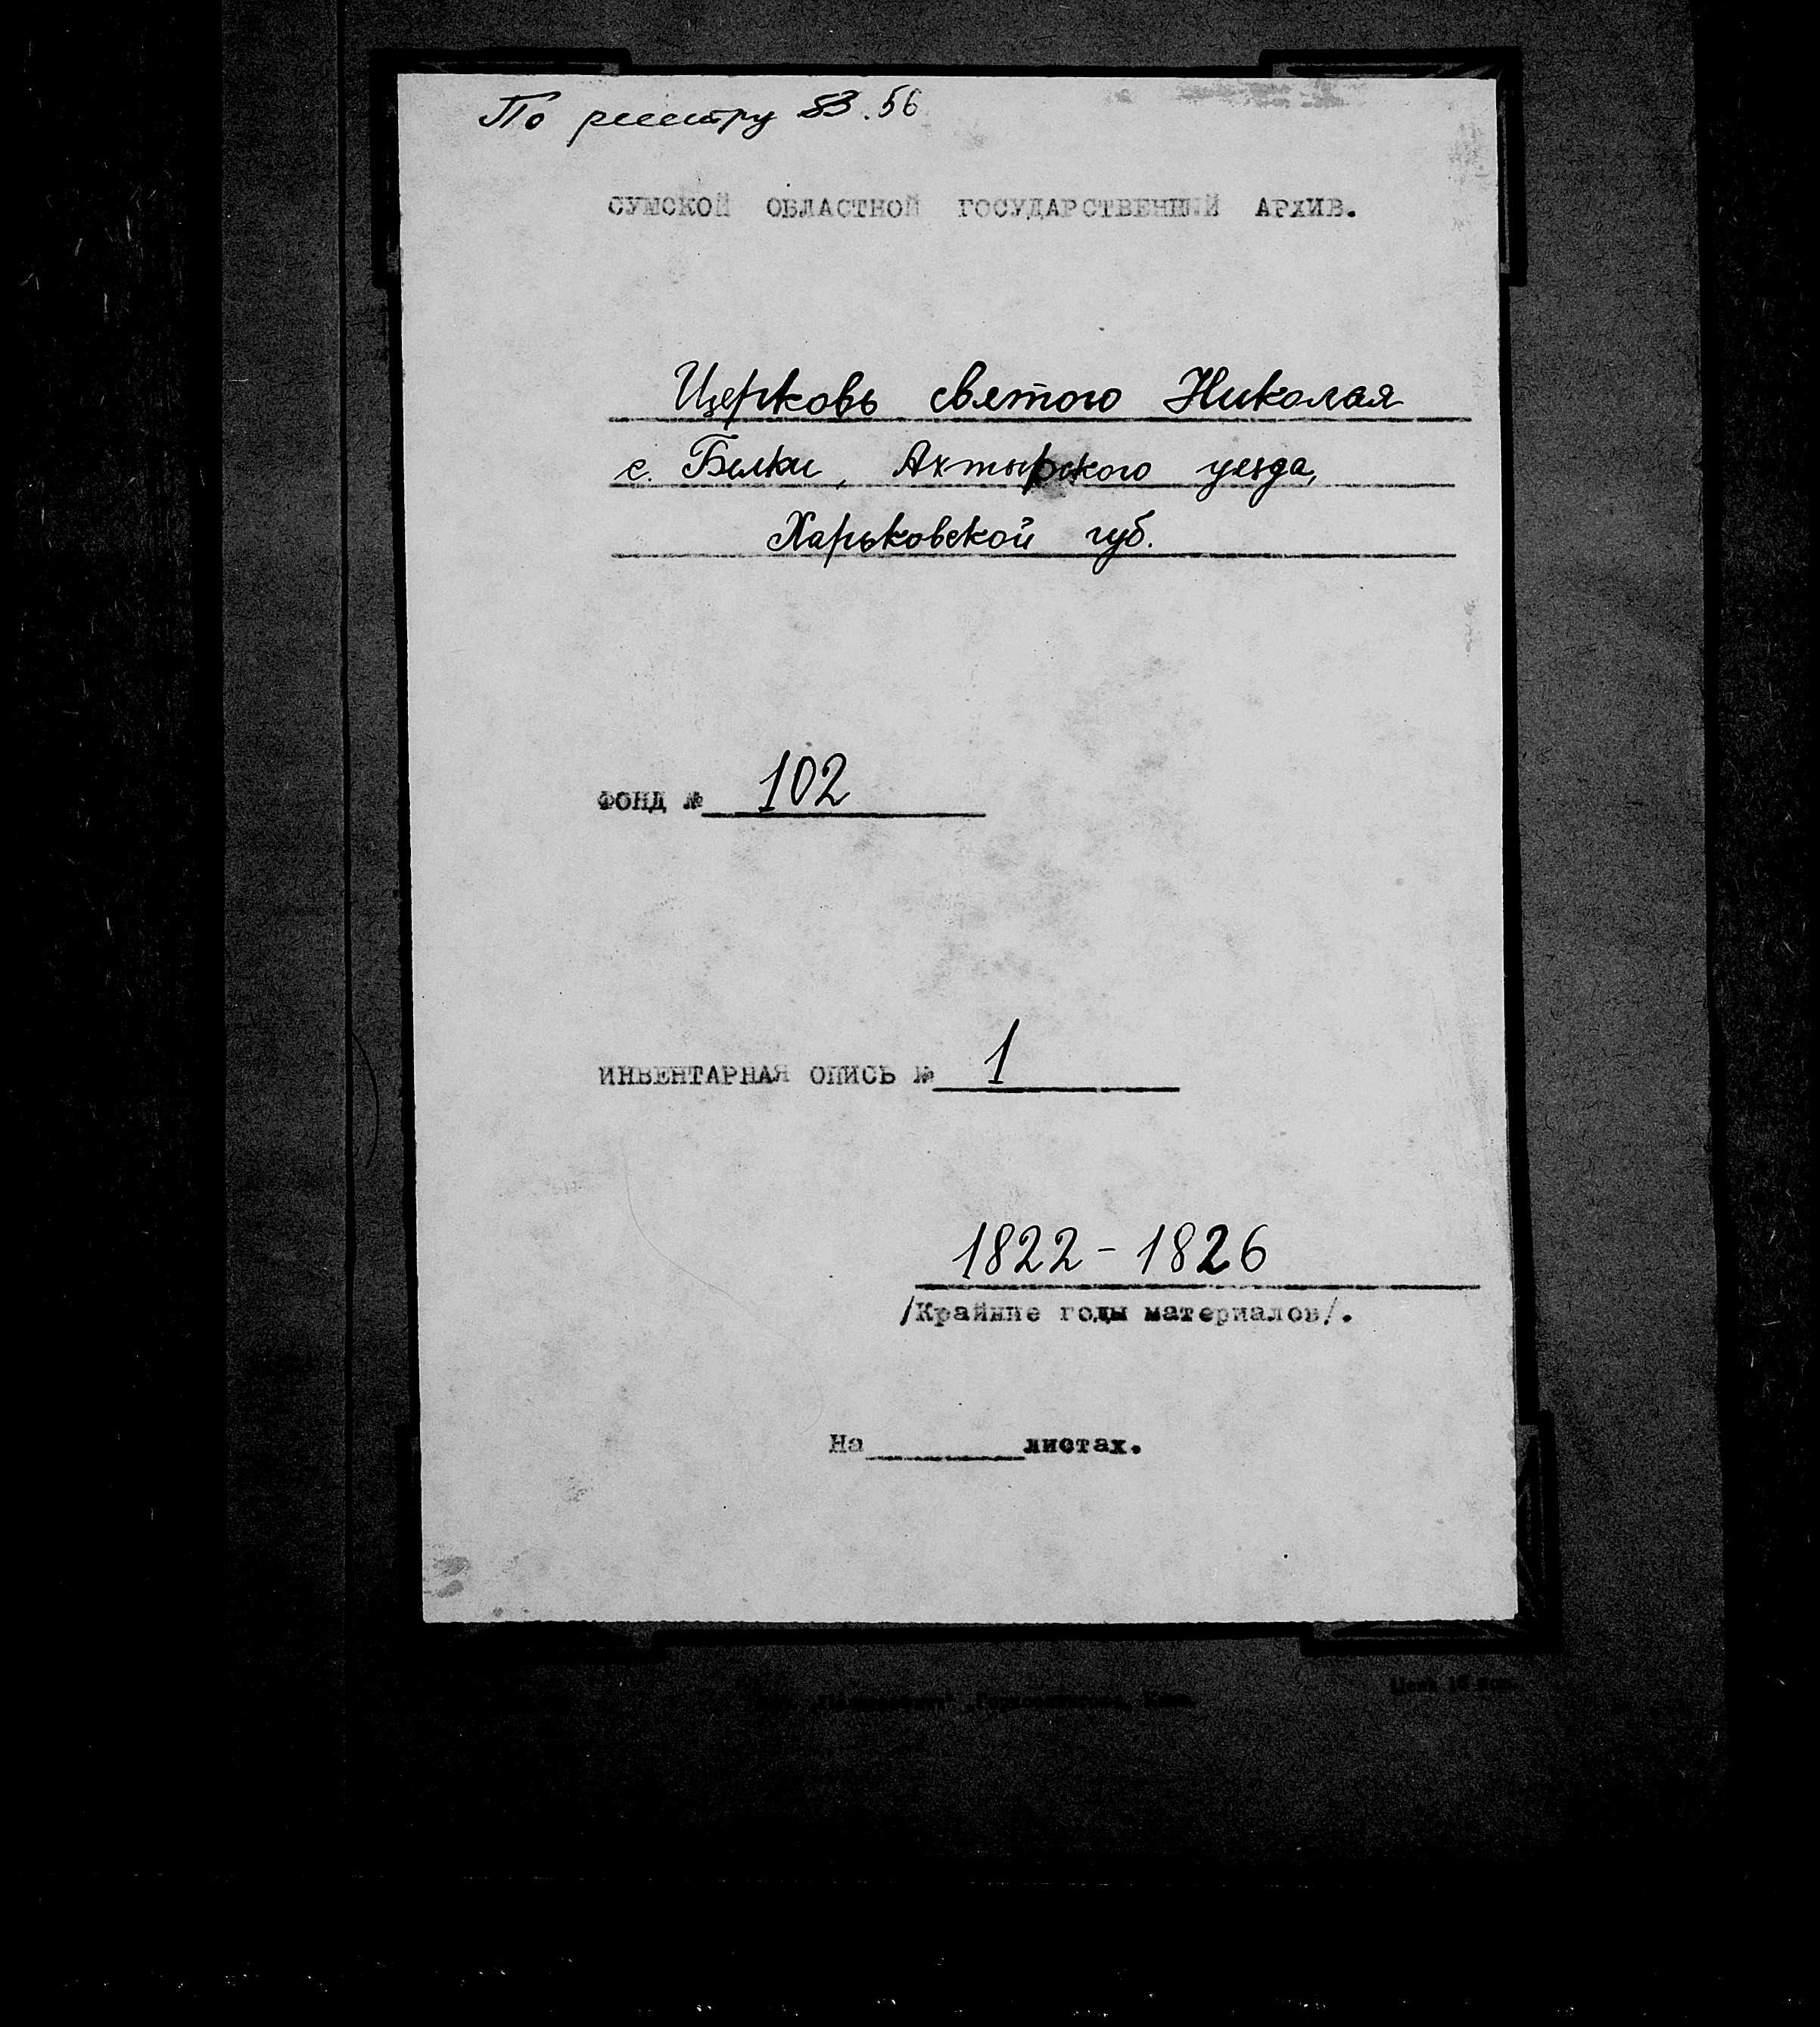 По реестру 53.56
СУМСКОЙ ОБЛАСТНОЙ ГОСУДАРСТВЕННЫЙ АРХИВ.
Церковь святого Николая
с. Белки, Ахтырского уезда,
Харьковской губ.
ФОНД № 102
ИНВЕНТАРНАЯ ОПИСЬ № 1
1822-1826
/Крайние годы материалов/.
На листах.